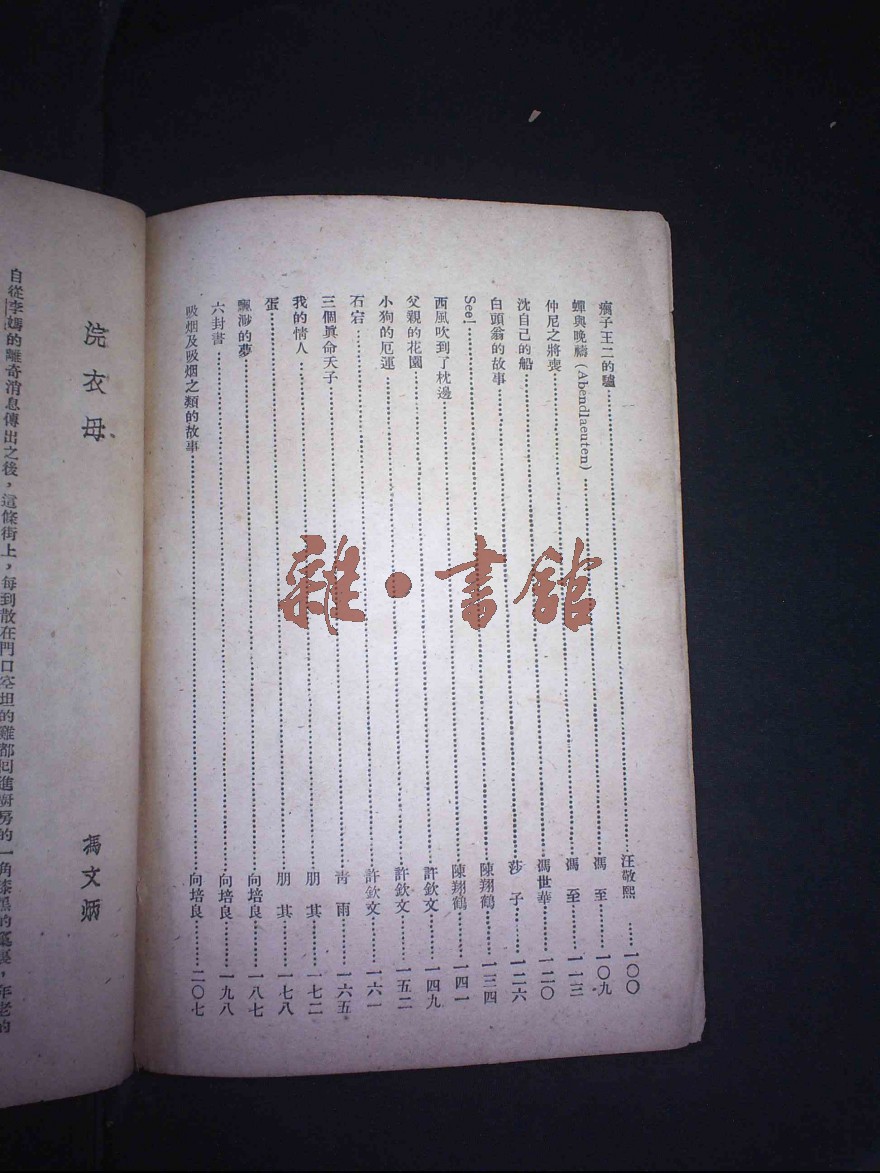 瘸子王二的驢……汪敬熙……一〇〇
蟬與晚禱（Abendlaeuten）……馮　至……一〇九
仲尼之將喪……馮　至……一一三
沈自己的船……馮世華……一二〇
白頭翁的故事……莎　子……一二六
See!……陳翔鶴……一三四
西風吹到了枕邊……陳翔鶴……一四一
父親的花園……許欽文……一四九
小狗的厄運……許欽文……一五二
石宕……許欽文……一六一
三個眞命天子……靑　雨……一六五
我的情人……朋　其……一七二
蛋……朋　其……一七八
飄渺的夢……向培良……一八七
六封書……向培良……一九八
吸烟及吸烟之類的故事……向培良……二〇七
雜·書館
浣衣母
馮文炳
自從李媽的離奇消息傳出之後，這條街上，每到散在門口空坦的雞都回進廚房的一角漆黑的窠裏，年老的